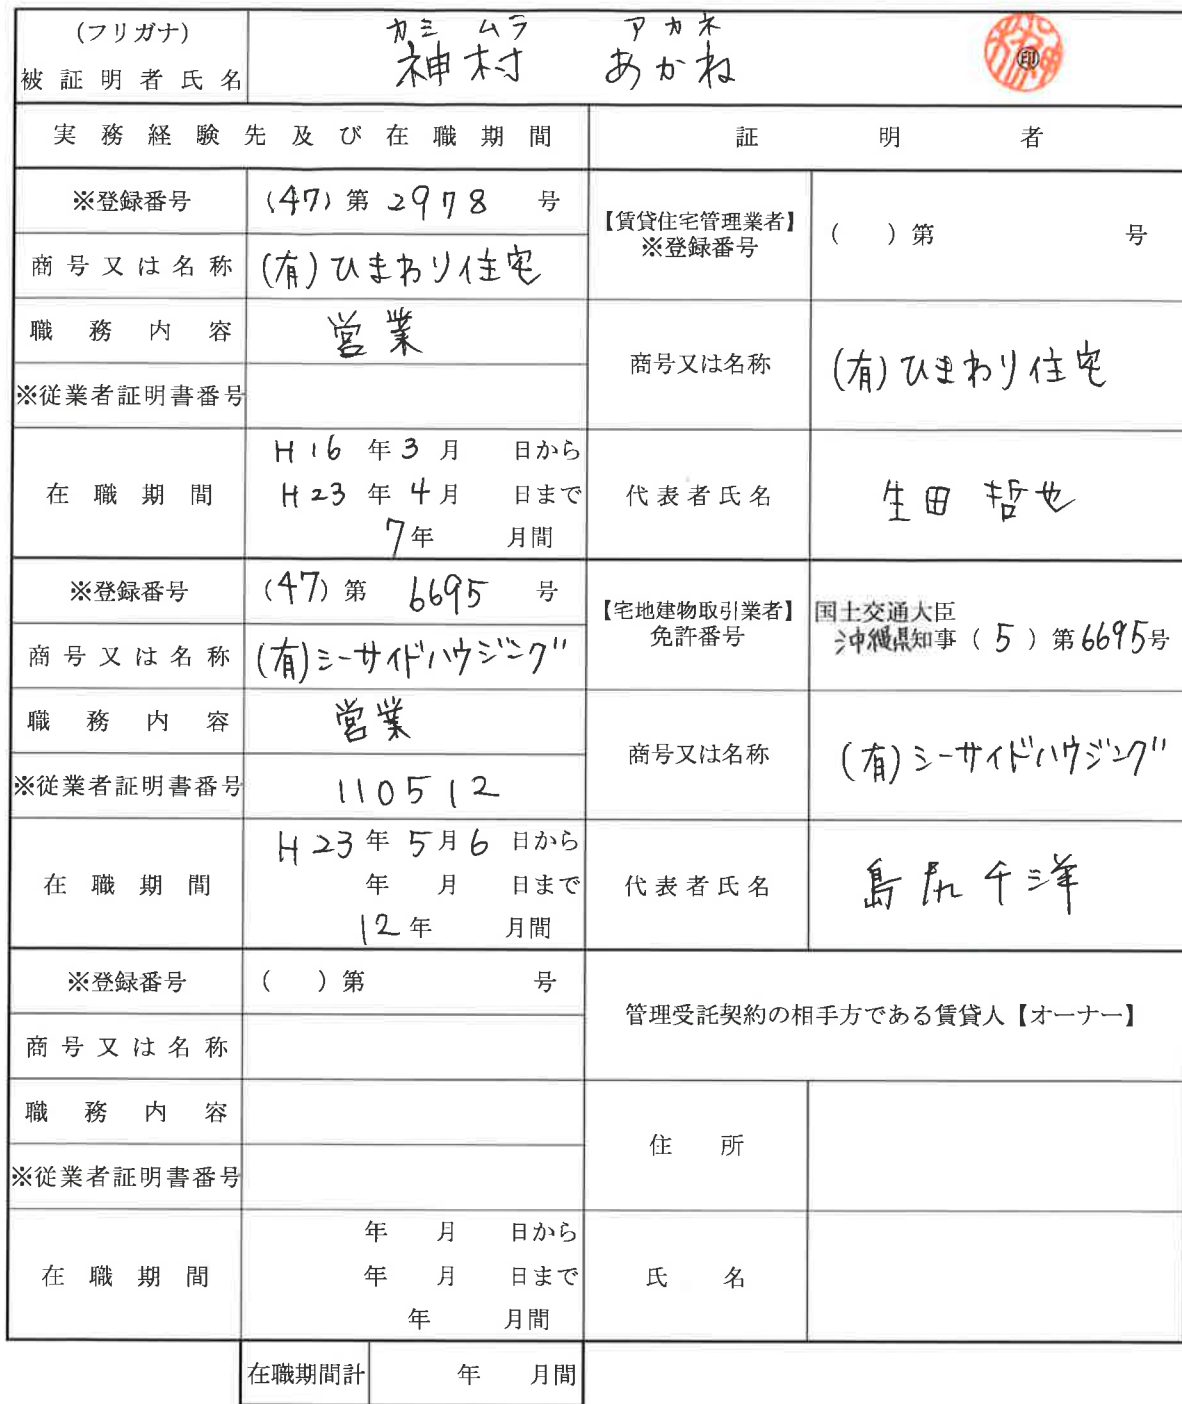 (フリガナ) カミ ムラ アカネ
被証明者氏名 神村 あかね ㊞
実務経験先及び在職期間 証明者
※登録番号 (47)第 2978 号
【賃貸住宅管理業者】
※登録番号 ( )第 号
商号又は名称 (有)ひまわり住宅
職務内容 営業
商号又は名称 (有)ひまわり住宅
※従業者証明書番号
在職期間
H16年3月 日から
H23年4月 日まで
7年 月間
代表者氏名 生田 哲也
※登録番号 (47)第 6695 号
【宅地建物取引業者】
免許番号
国土交通大臣
沖縄県知事(5)第6695号
商号又は名称 (有)シーサイドハウジング
職務内容 営業
商号又は名称 (有)シーサイドハウジング
※従業者証明書番号 110512
在職期間
H23年5月6日から
年 月 日まで
12年 月間
代表者氏名 島尻 千洋
※登録番号 ( )第 号
管理受託契約の相手方である賃貸人【オーナー】
商号又は名称
職務内容
住所
※従業者証明書番号
在職期間
年 月 日から
年 月 日まで
年 月間
氏名
在職期間計 年 月間